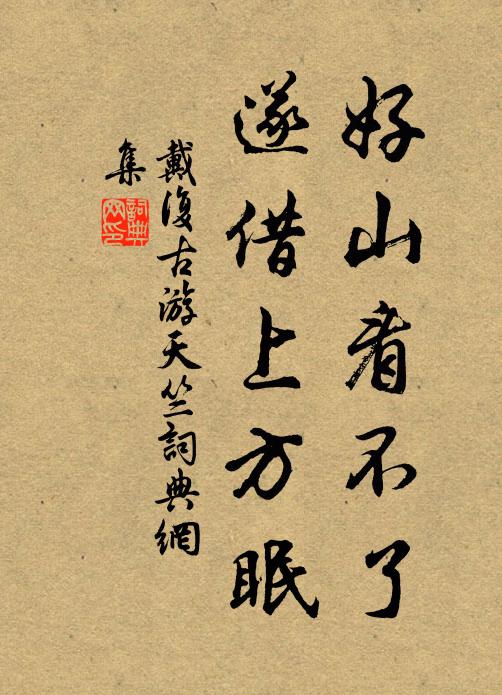 好山看不了
遂借上方眠
戴復古游天竺詞典網
集
詞典網印